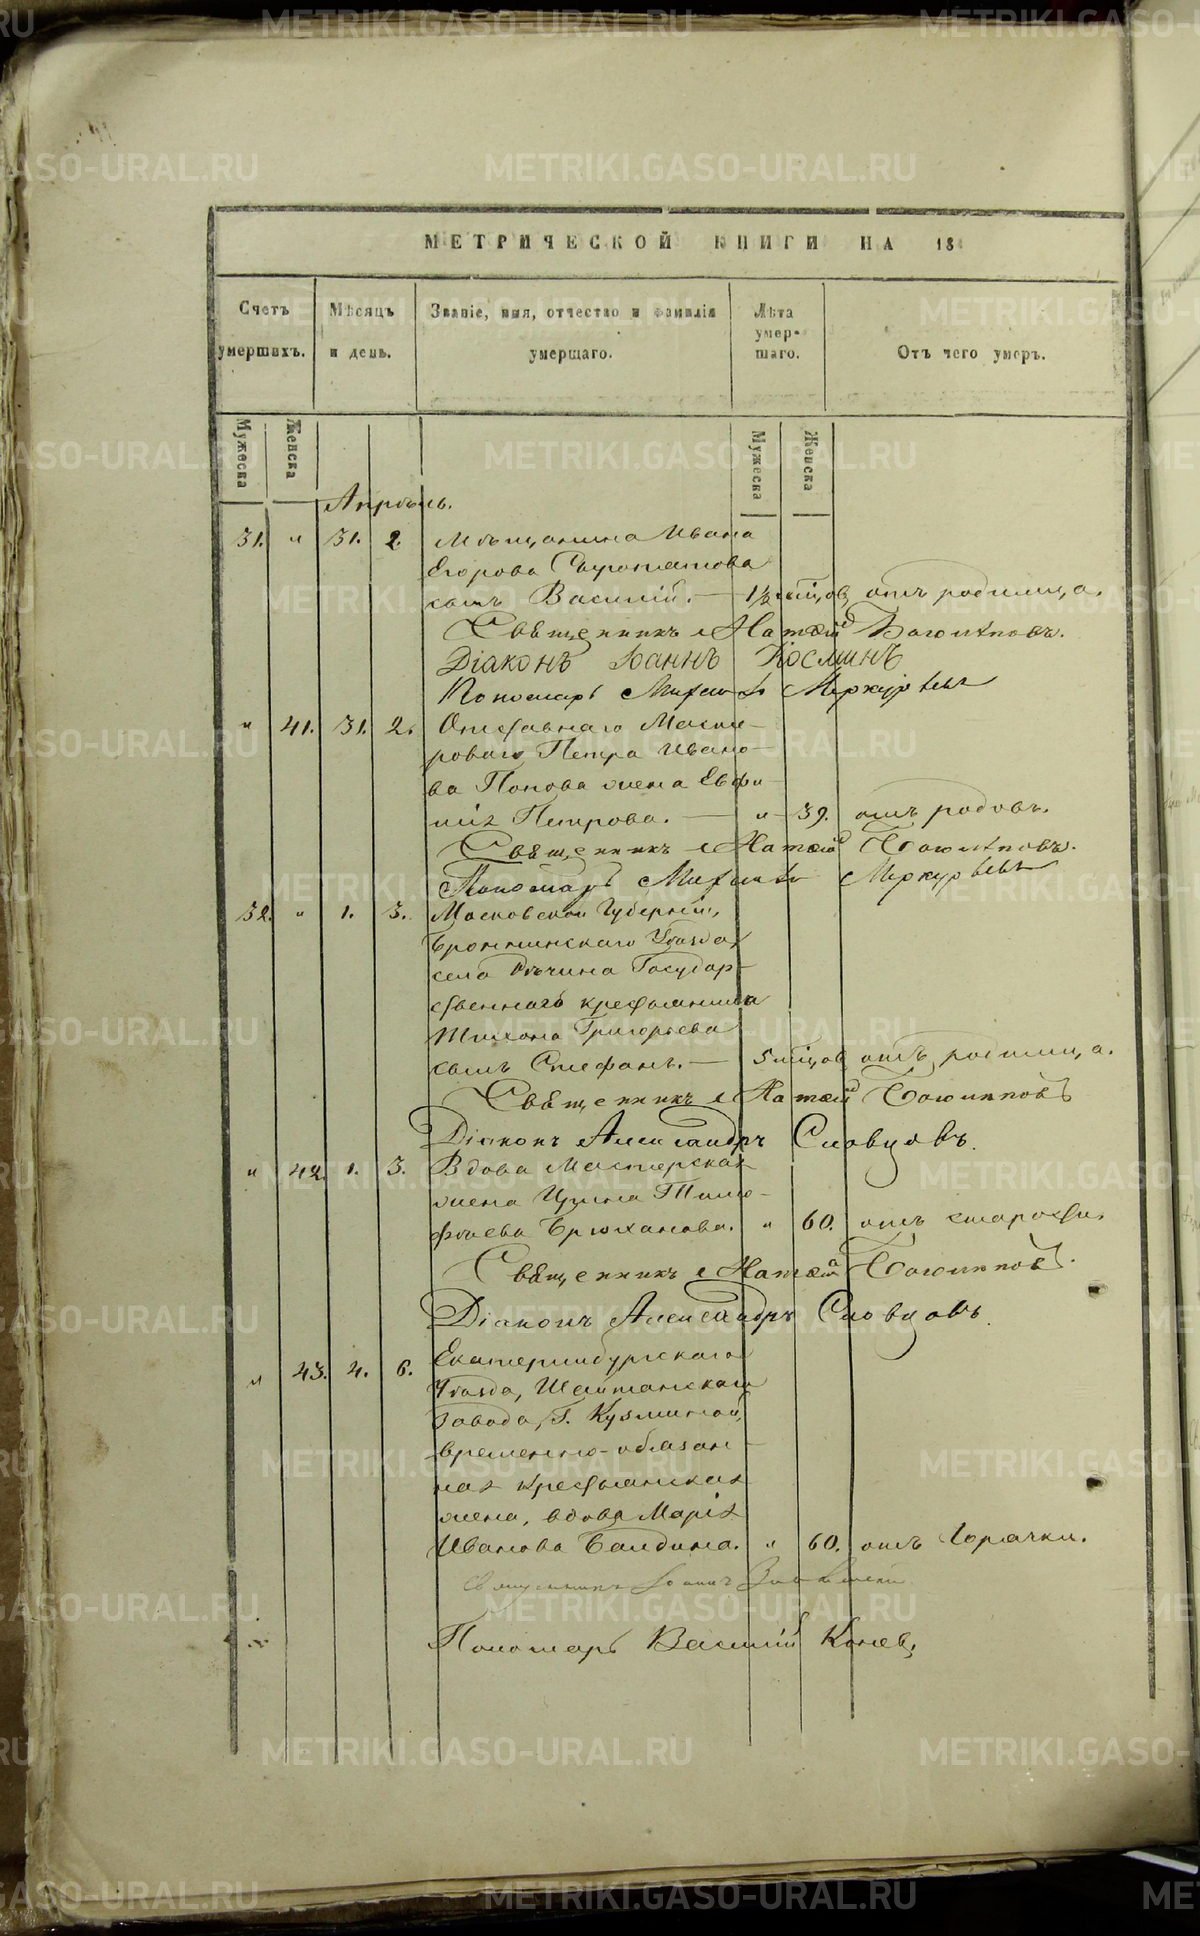 МЕТРИЧЕСКОЙ КНИГИ НА 18
Счетъ умершихъ.
Мѣсяцъ и день.
Званіе, имя, отчество и фамилія умершаго.
Лѣта умершаго.
Отъ чего умеръ.
Мужеска
Женска
Мужеска
Женска
Апрѣль.
31. " 31. 2. Мѣщанина Ивана
Егорова Сыромятова
сынъ Василій. — 1½ мѣсцов отъ родимца.
Священникъ Игнатій
Діаконъ Іоаннъ Косминъ
Пономарь Михаилъ Меркурьевъ
" 41. 31. 2. Отставнаго Масте-
роваго Петра Ивано-
ва Попова жена Евфи-
мія Петрова. — " 39. отъ родовъ.
Священникъ
Пономарь Михаилъ Меркурьевъ
32. " 1. 3. Московской Губерніи,
Бронницкаго Уѣзда,
села Государ-
ственнаго крестьянина
Тихона Григорьева
сынъ Стефанъ. — 5 мѣсцов отъ родимца.
Священникъ
Діаконъ Александръ Словцовъ.
" 42. 1. 3. Вдова Мастерская
жена Ирина Тимо-
феева Брюханова. " 60. отъ старости.
Священникъ
Діаконъ Александръ Словцовъ.
" 43. 4. 6. Екатеринбургскаго
Уѣзда, Шайтанскаго
завода, Г. Кузминой,
временно-обязан-
ная крестьянская
жена, вдова Марія
Иванова Балдина. " 60. отъ Горячки.
Священникъ Іоаннъ
Пономарь Василій Конев
METRIKI.GASO-URAL.RU